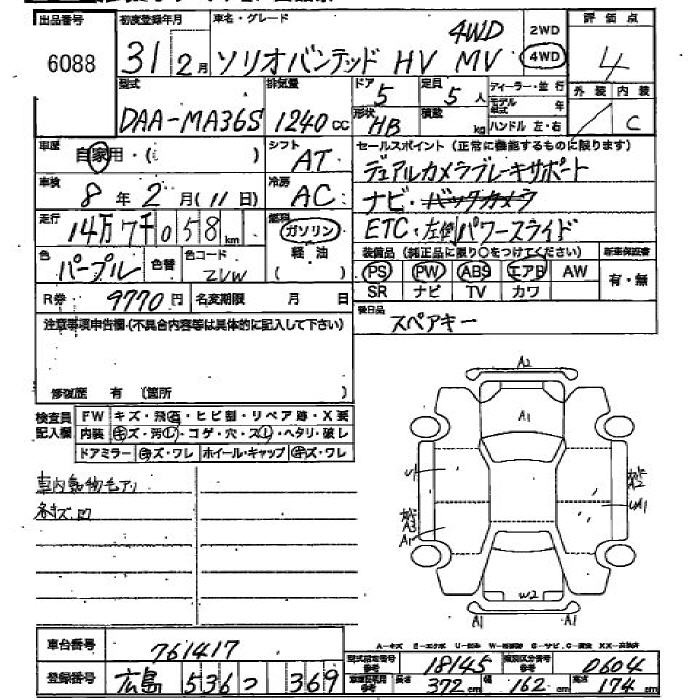 出品番号 初度登録年月 車名・グレード 評価点
6088 31 2月 ソリオバンデッド HV MV 4WD 2WD 4WD 4
型式 排気量 ドア 定員 ディーラー・並行 外装 内装
DAA-MA36S 1240cc 5 5人 モデル年式 年 C
形状 HB 積載 kg ハンドル 左・右
車歴 自家用・( ) シフト AT セールスポイント(正常に機能するものに限ります)
デュアルカメラブレーキサポート
車検 8年2月(11日) 冷房 AC ナビ・バックカメラ
走行 14万7千058km 燃料 ガソリン 軽油 ( ) ETC・左側パワースライド
色 パープル 色替 色コード ZVW 装備品(純正品に限り○をつけてください) 新車保証書
PS PW ABS エアB AW 有・無
SR ナビ TV カワ
R券 9770円 名変期限 月 日
後日品 スペアキー
注意事項申告欄・(不具合内容等は具体的に記入して下さい)
修復歴 有 (箇所 )
検査員記入欄 FW キズ・飛石・ヒビ割・リペア跡・X要
内装 キズ・汚レ・コゲ・穴・スレ・ヘタリ・破レ
ドアミラー キズ・ワレ ホイール・キャップ キズ・ワレ
車内動物毛アリ
A2
A1
U1
A2
UA1
A3
A1
W2
A1 A1
車台番号 761417
型式指定番号 18145 類別区分番号 0604
登録番号 広島 536 つ 369
長さ 372cm 幅 162cm 高さ 174cm